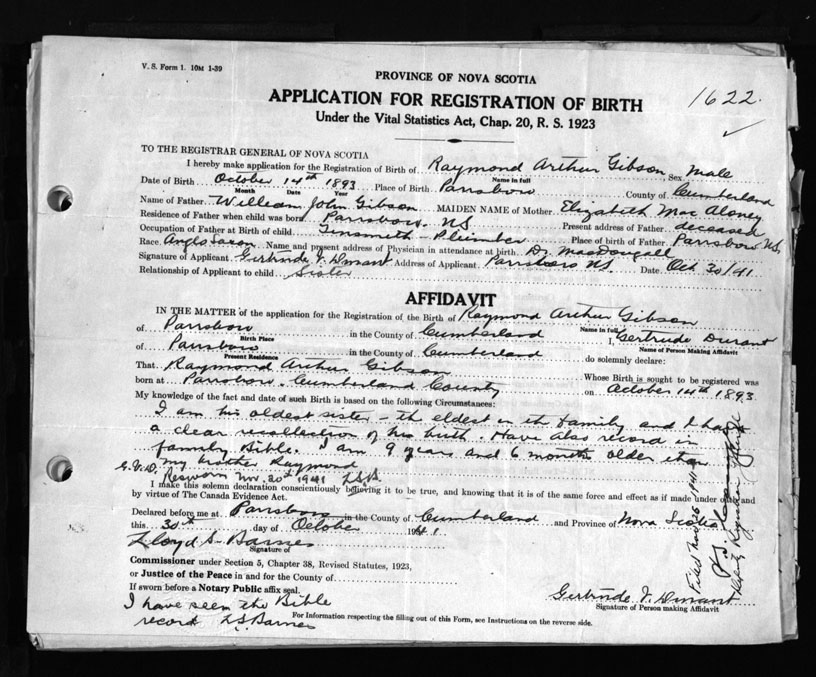 V. S. Form 1. 10M 1-39
PROVINCE OF NOVA SCOTIA
1622.
APPLICATION FOR REGISTRATION OF BIRTH
Under the Vital Statistics Act, Chap. 20, R. S. 1923
TO THE REGISTRAR GENERAL OF NOVA SCOTIA
I hereby make application for the Registration of Birth of Raymond Arthur Gibson Sex Male
Name in full
Date of Birth October 14th 1893 Place of Birth Parrsboro County of Cumberland
Month Date Year
Name of Father William John Gibson MAIDEN NAME of Mother Elizabeth Mac Aloney
Residence of Father when child was born Parrsboro. NS Present address of Father deceased
Occupation of Father at Birth of child Tinsmith - Plumber Place of birth of Father Parrsboro NS,
Race Anglo Saxon Name and present address of Physician in attendance at birth Dr. MacDougall
Signature of Applicant Gertrude V. Durant Address of Applicant Parrsboro NS Date Oct 30/41
Relationship of Applicant to child Sister
AFFIDAVIT
IN THE MATTER of the application for the Registration of the Birth of Raymond Arthur Gibson
Name in full
of Parrsboro in the County of Cumberland I, Gertrude Durant
Birth Place Name of Person Making Affidavit
of Parrsboro in the County of Cumberland do solemnly declare:
Present Residence
That Raymond Arthur Gibson Whose Birth is sought to be registered was
born at Parrsboro. Cumberland County on October 14th 1893
My knowledge of the fact and date of such Birth is based on the following Circumstances:
I am his oldest sister - the eldest in the family and I have
a clear recollection of his birth. Have also record in
family Bible. I am 9 years and 6 months older than
my brother Raymond
G.V.D. Resworn Nov. 20th 1941 LSB.
I make this solemn declaration conscientiously believing it to be true, and knowing that it is of the same force and effect as if made under oath and
by virtue of The Canada Evidence Act.
Declared before me at Parrsboro in the County of Cumberland and Province of Nova Scotia
this 30th day of October 1941
Lloyd S. Barnes
Signature of
Commissioner under Section 5, Chapter 38, Revised Statutes, 1923,
or Justice of the Peace in and for the County of
If sworn before a Notary Public affix seal.
Gertrude V. Durant
Signature of Person making Affidavit
I have seen the Bible
record LSBarnes
For Information respecting the filling out of this Form, see Instructions on the reverse side.
Filed Nov 26 1941
Deputy Registrar General